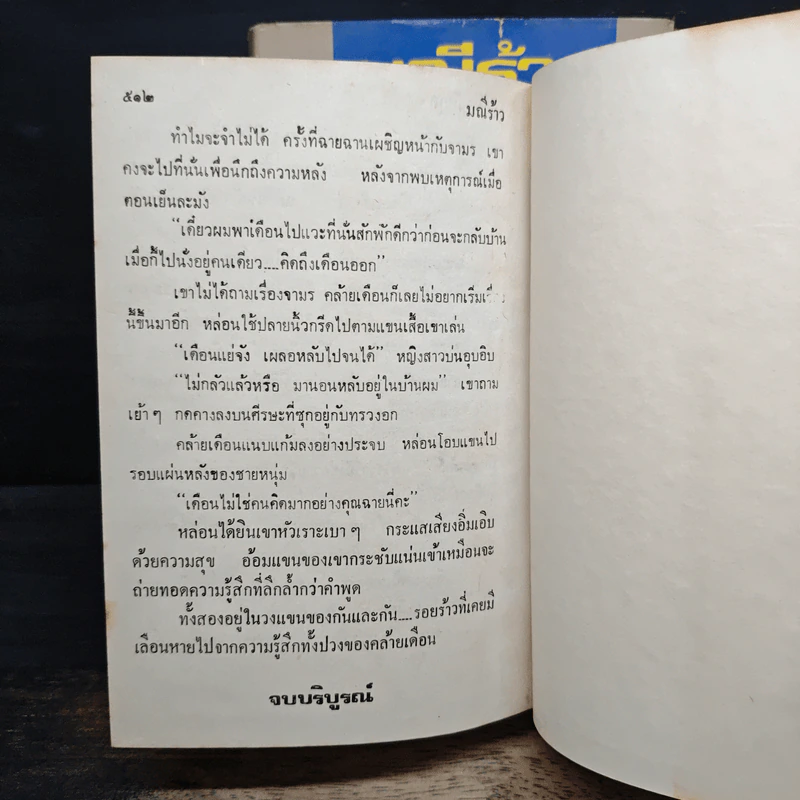 ๕๑๒
มณีร้าว
ทำไมจะจำไม่ได้ ครั้งที่ฉายฉานเผชิญหน้ากับจามร เขา
คงจะไปที่นั่นเพื่อนึกถึงความหลัง หลังจากพบเหตุการณ์เมื่อ
ตอนเย็นละมัง
“เดี๋ยวผมพาเดือนไปแวะที่นั่นสักพักดีกว่าก่อนจะกลับบ้าน
เมื่อกี้ไปนั่งอยู่คนเดียว....คิดถึงเดือนออก”
เขาไม่ได้ถามเรื่องจามร คล้ายเดือนก็เลยไม่อยากเริ่ม
นี้ขึ้นมาอีก หล่อนใช้ปลายนิ้วกรีดไปตามแขนเสื้อเขาเล่น
“เดือนแย่จัง เผลอหลับไปจนได้” หญิงสาวบ่นอุบอิบ
“ไม่กลัวแล้วหรือ มานอนหลับอยู่ในบ้านผม” เขาถาม
เย้าๆ กดคางลงบนศีรษะที่ซุกอยู่กับทรวงอก
คล้ายเดือนแนบแก้มลงอย่างประจบ หล่อนโอบแขนไป
รอบแผ่นหลังของชายหนุ่ม
“เดือนไม่ใช่คนคิดมากอย่างคุณฉายนี่คะ”
หล่อนได้ยินเขาหัวเราะเบาๆ กระแสเสียงอิ่มเอิบ
ด้วยความสุข อ้อมแขนของเขากระชับแน่นเข้าเหมือนจะ
ถ่ายทอดความรู้สึกที่ลึกล้ำกว่าคำพูด
ทั้งสองอยู่ในวงแขนของกันและกัน....รอยร้าวที่เคยมี
เลือนหายไปจากความรู้สึกทั้งปวงของคล้ายเดือน
จบบริบูรณ์